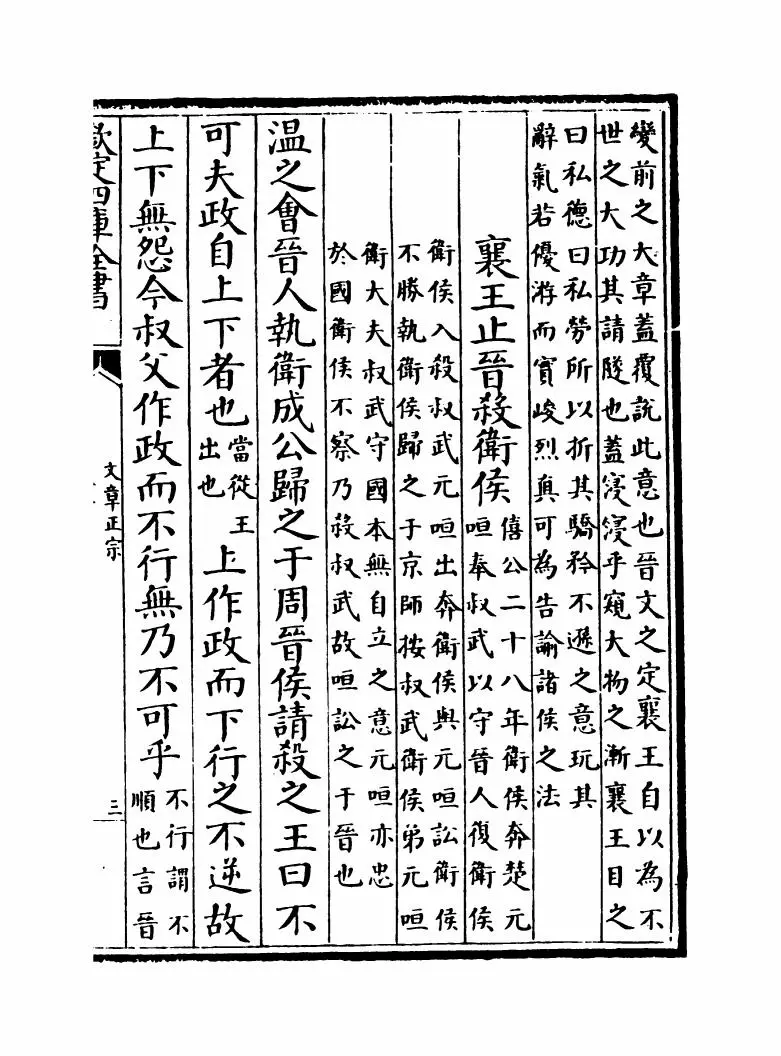 變前之大章蓋覆說此意也晉文之定襄王自以為不
世之大功其請隧也蓋寖寖乎窺大物之漸襄王目之
曰私德曰私勞所以折其驕矜不遜之意玩其
辭氣若優游而實峻烈真可為告諭諸侯之法
襄王止晉殺衛侯
僖公二十八年衛侯奔楚元
咺奉叔武以守晉人復衛侯
衛侯入殺叔武元咺出奔衛侯與元咺訟衛侯
不勝執衛侯歸之于京師按叔武衛侯弟元咺
衛大夫叔武守國本無自立之意元咺亦忠
於國衛侯不察乃殺叔武故咺訟之于晉也
溫之會晉人執衛成公歸之于周晉侯請殺之王曰不
可夫政自上下者也
當從王
出也
上作政而下行之不逆故
上下無怨今叔父作政而不行無乃不可乎
不行謂不
順也言晉
欽定四庫全書
文章正宗
三